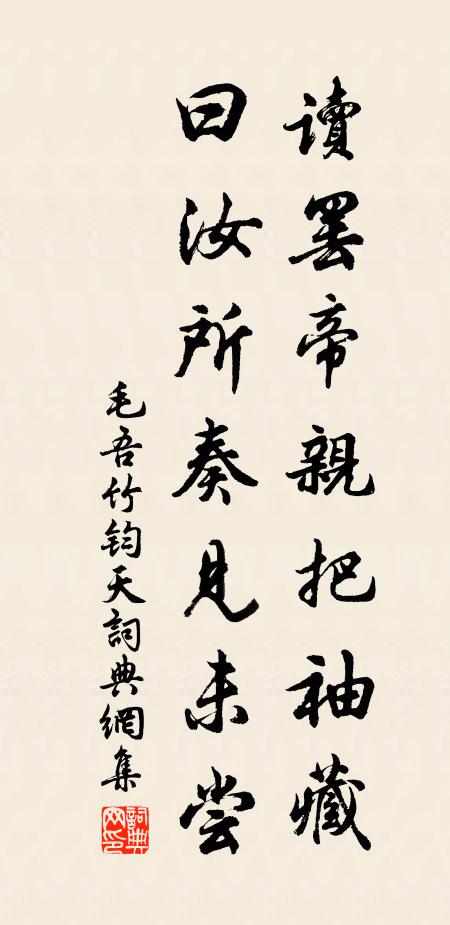 讀罷帝親把袖藏
曰汝所奏見未嘗
毛吾竹鈞天詞典網集
詞典網印